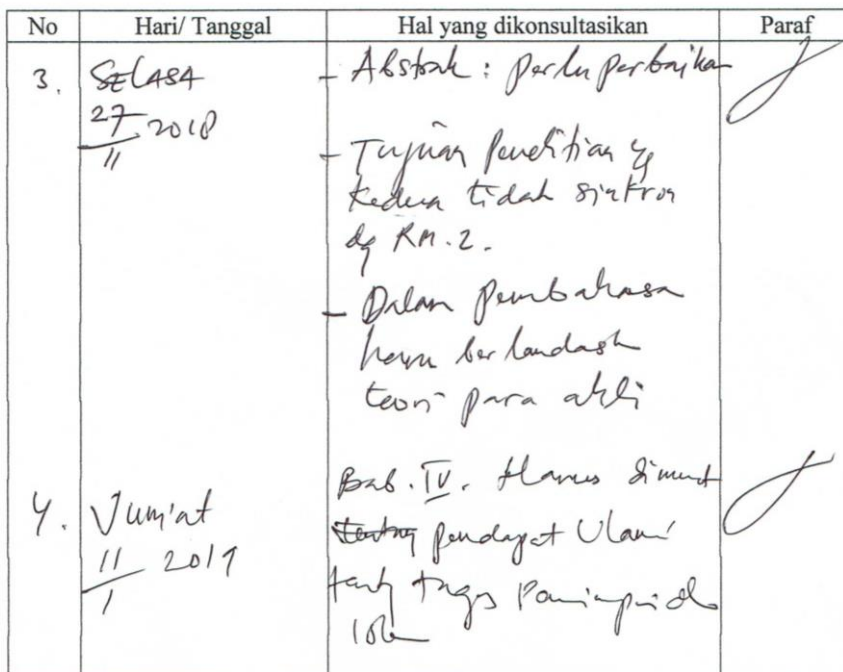 No Hari/ Tanggal Hal yang dikonsultasikan Paraf
3. SELASA - Abstrak : perlu perbaikan
27 2018
11
- Tujuan penelitian yg
kedua tidak sinkron
dg RM. 2.
- Dalam Pembahasa
harus berlandask
teori para ahli
4. Jum'at Bab. IV. Harus dimuat
11 2019 tentang pendapat Ulama'
1 tentg tugas Pemimpin dlm
Islam